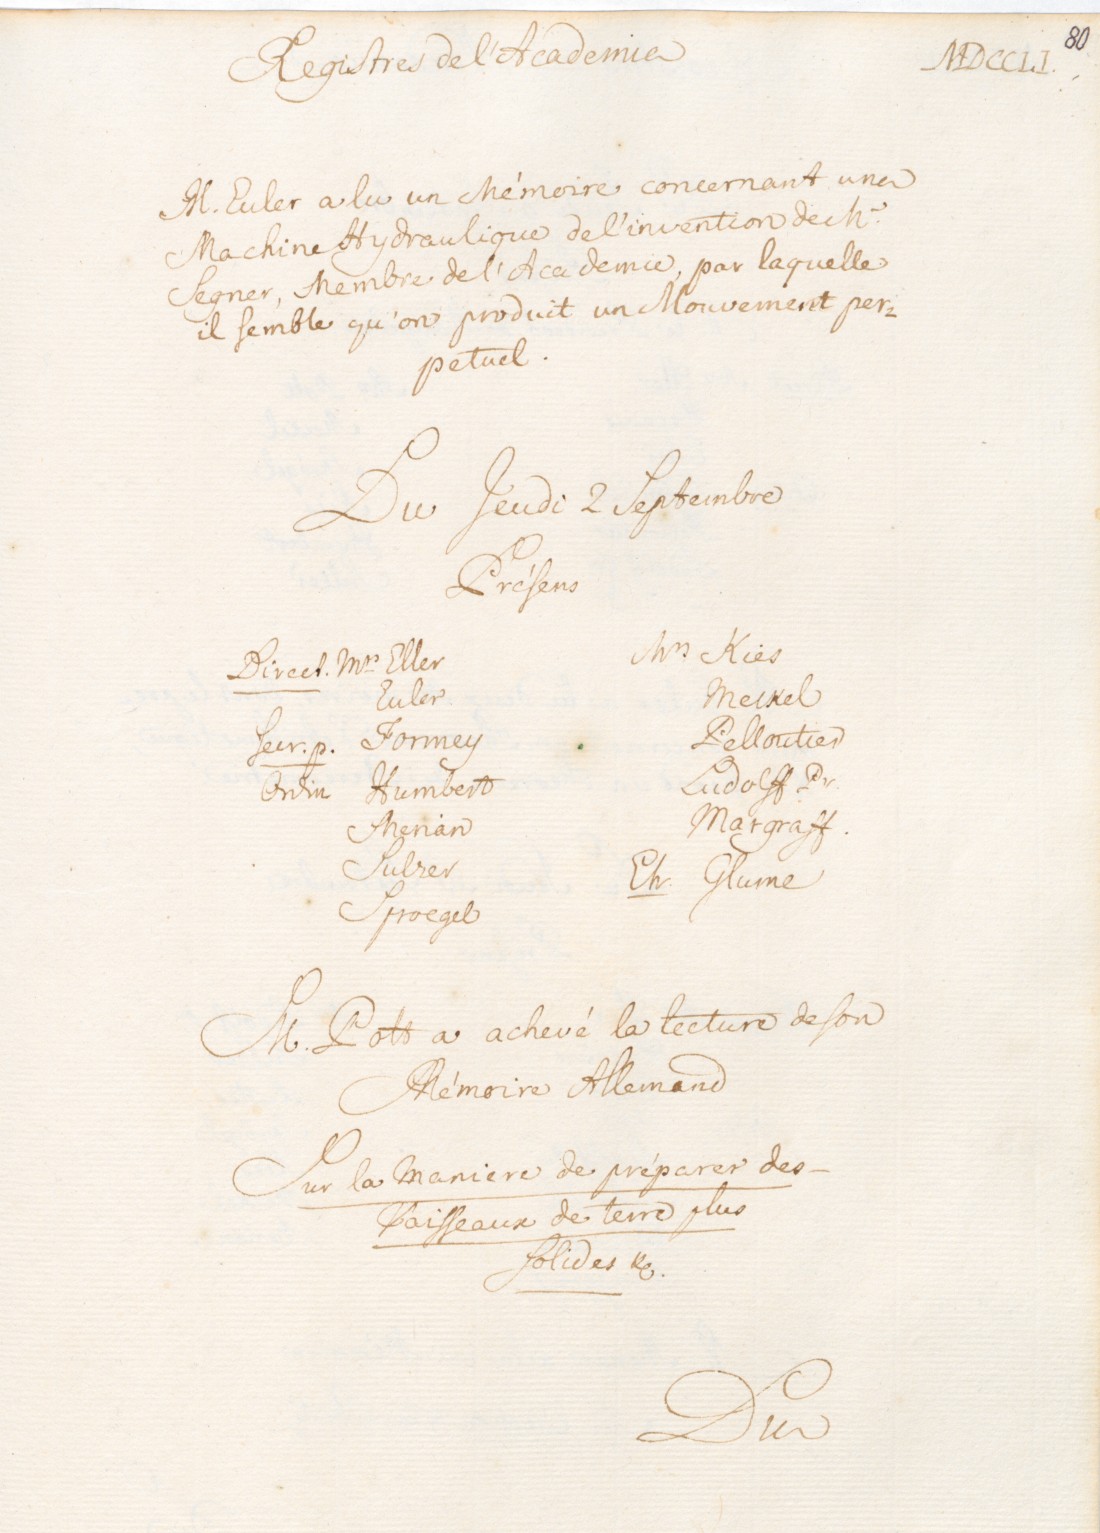 80
Registres de l'Academie MDCCLI.
M. Euler a lu un Mémoire concernant une
Machine Hydraulique de l'invention de Mr.
Segner, Membre de l'Academie, par laquelle
il semble qu'on produit un Mouvement per=
petuel.
Du Jeudi 2 Septembre
Présens
Direct. Mrs Eller
Euler
Secr. p. Formey
Ordin Humbert
Merian
Sulzer
Sproegel
Mrs Kies
Meckel
Pelloutier
Ludolff Pr.
Margraff.
Etr. Glume
M. Pott a achevé la lecture de son
Mémoire Allemand
Sur la maniere de préparer des
Vaisseaux de terre plus
solides &c.
Du